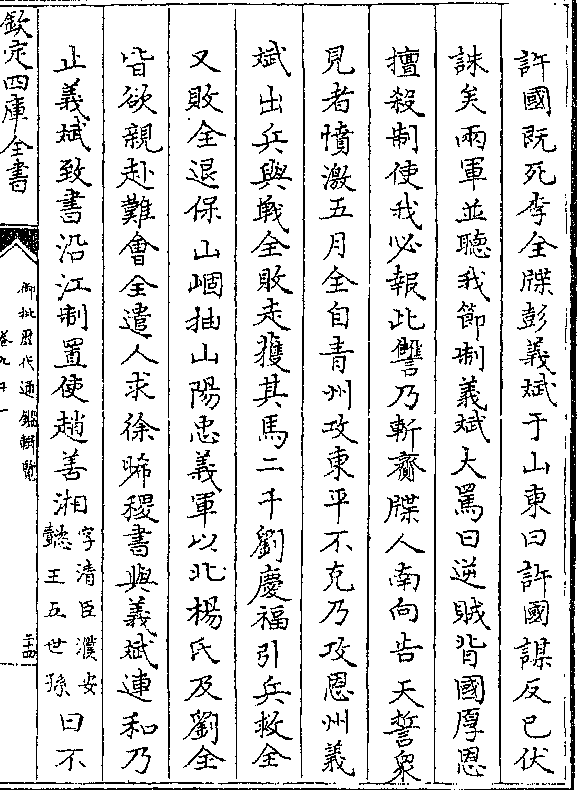 許國既死李全牒彭義斌于山東曰許國謀反已伏
誅矣兩軍並聽我節制義斌大罵曰逆賊背國厚恩
擅殺制使我必報此讐乃斬齎牒人南向告天誓衆
見者憤激五月全自青州攻東平不克乃攻恩州義
斌出兵與戰全敗走獲其馬二千劉慶福引兵救全
又敗全退保山崓抽山陽忠義軍以北楊氏及劉全
皆欲親赴難會全遣人求徐晞稷書與義斌連和乃
止義斌致書沿江制置使趙善湘字清臣濮安懿王五世孫曰不
欽定四庫全書
御批歷代通鑑輯覽
卷九十一
二十四